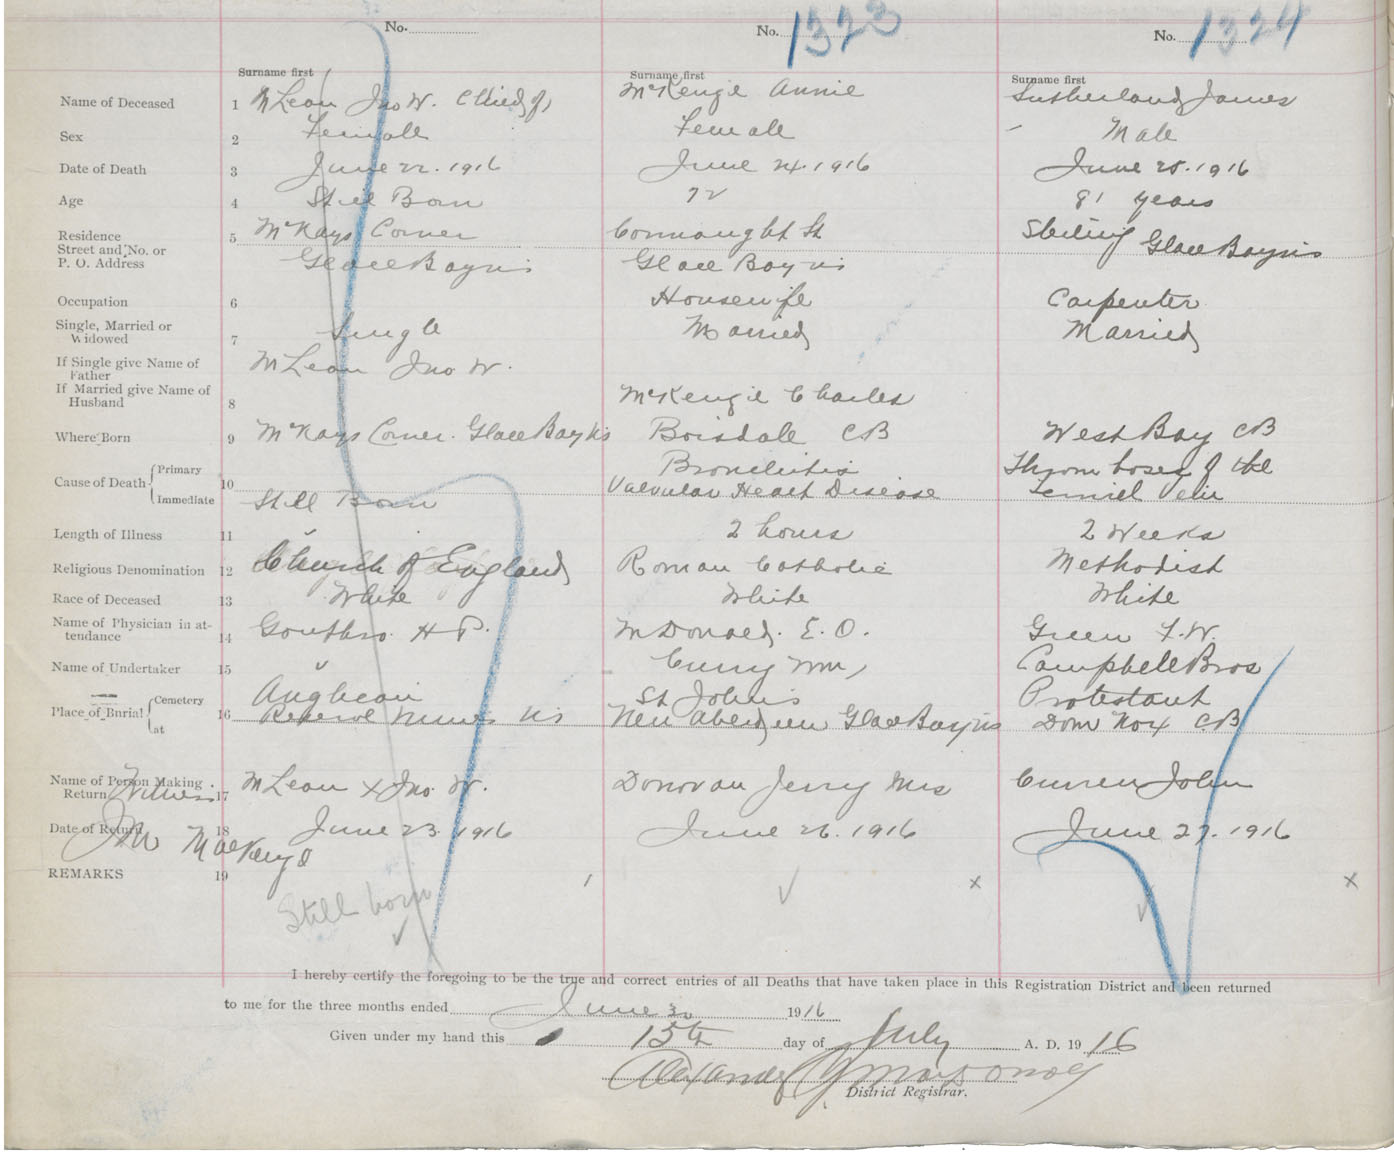 No. No. 1323 No. 1324
Surname first Surname first Surname first
Name of Deceased 1 McLean Jno W. Child of McKenzie Annie Sutherland James
Sex 2 Female Female Male
Date of Death 3 June 22. 1916 June 24. 1916 June 25. 1916
Age 4 Still Born 72 81 years
Residence 5 McKays Corner Connaught St Sterling Glace Bay NS
Street and No. or
P. O. Address Glace Bay NS Glace Bay NS
Occupation 6 Housewife Carpenter
Single, Married or
Widowed 7 Single Married Married
If Single give Name of
Father McLean Jno W.
If Married give Name of
Husband 8 McKenzie Charles
Where Born 9 McKays Corner. Glace Bay NS Boisdale CB West Bay CB
Cause of Death Primary 10 Bronchitis Thromboses of the
Immediate Still Born Valvular Heart Disease Vein
Length of Illness 11 " 2 hours 2 Weeks
Religious Denomination 12 Church of England Roman Catholic Methodist
Race of Deceased 13 White White White
Name of Physician in at-
tendance 14 Gouthro. H P. McDonald. E. O. Green F. W.
Name of Undertaker 15 " Curry Wm Campbell Bros
Place of Burial Cemetery 16 Anglican St Johns Protestant
at Reserve Mines NS New Aberdeen Glace Bay NS Dom No 4 CB
Name of Person Making
Return Witness 17 McLean x Jno. W. Donovan Jerry Mrs Curren John
Date of Return 18 June 23. 1916 June 26. 1916 June 27. 1916
J M MacKenzie
REMARKS 19 x x
Still born
I hereby certify the foregoing to be the true and correct entries of all Deaths that have taken place in this Registration District and been returned
to me for the three months ended June 30 1916
Given under my hand this 15th day of July A. D. 1916
Alexander
District Registrar.